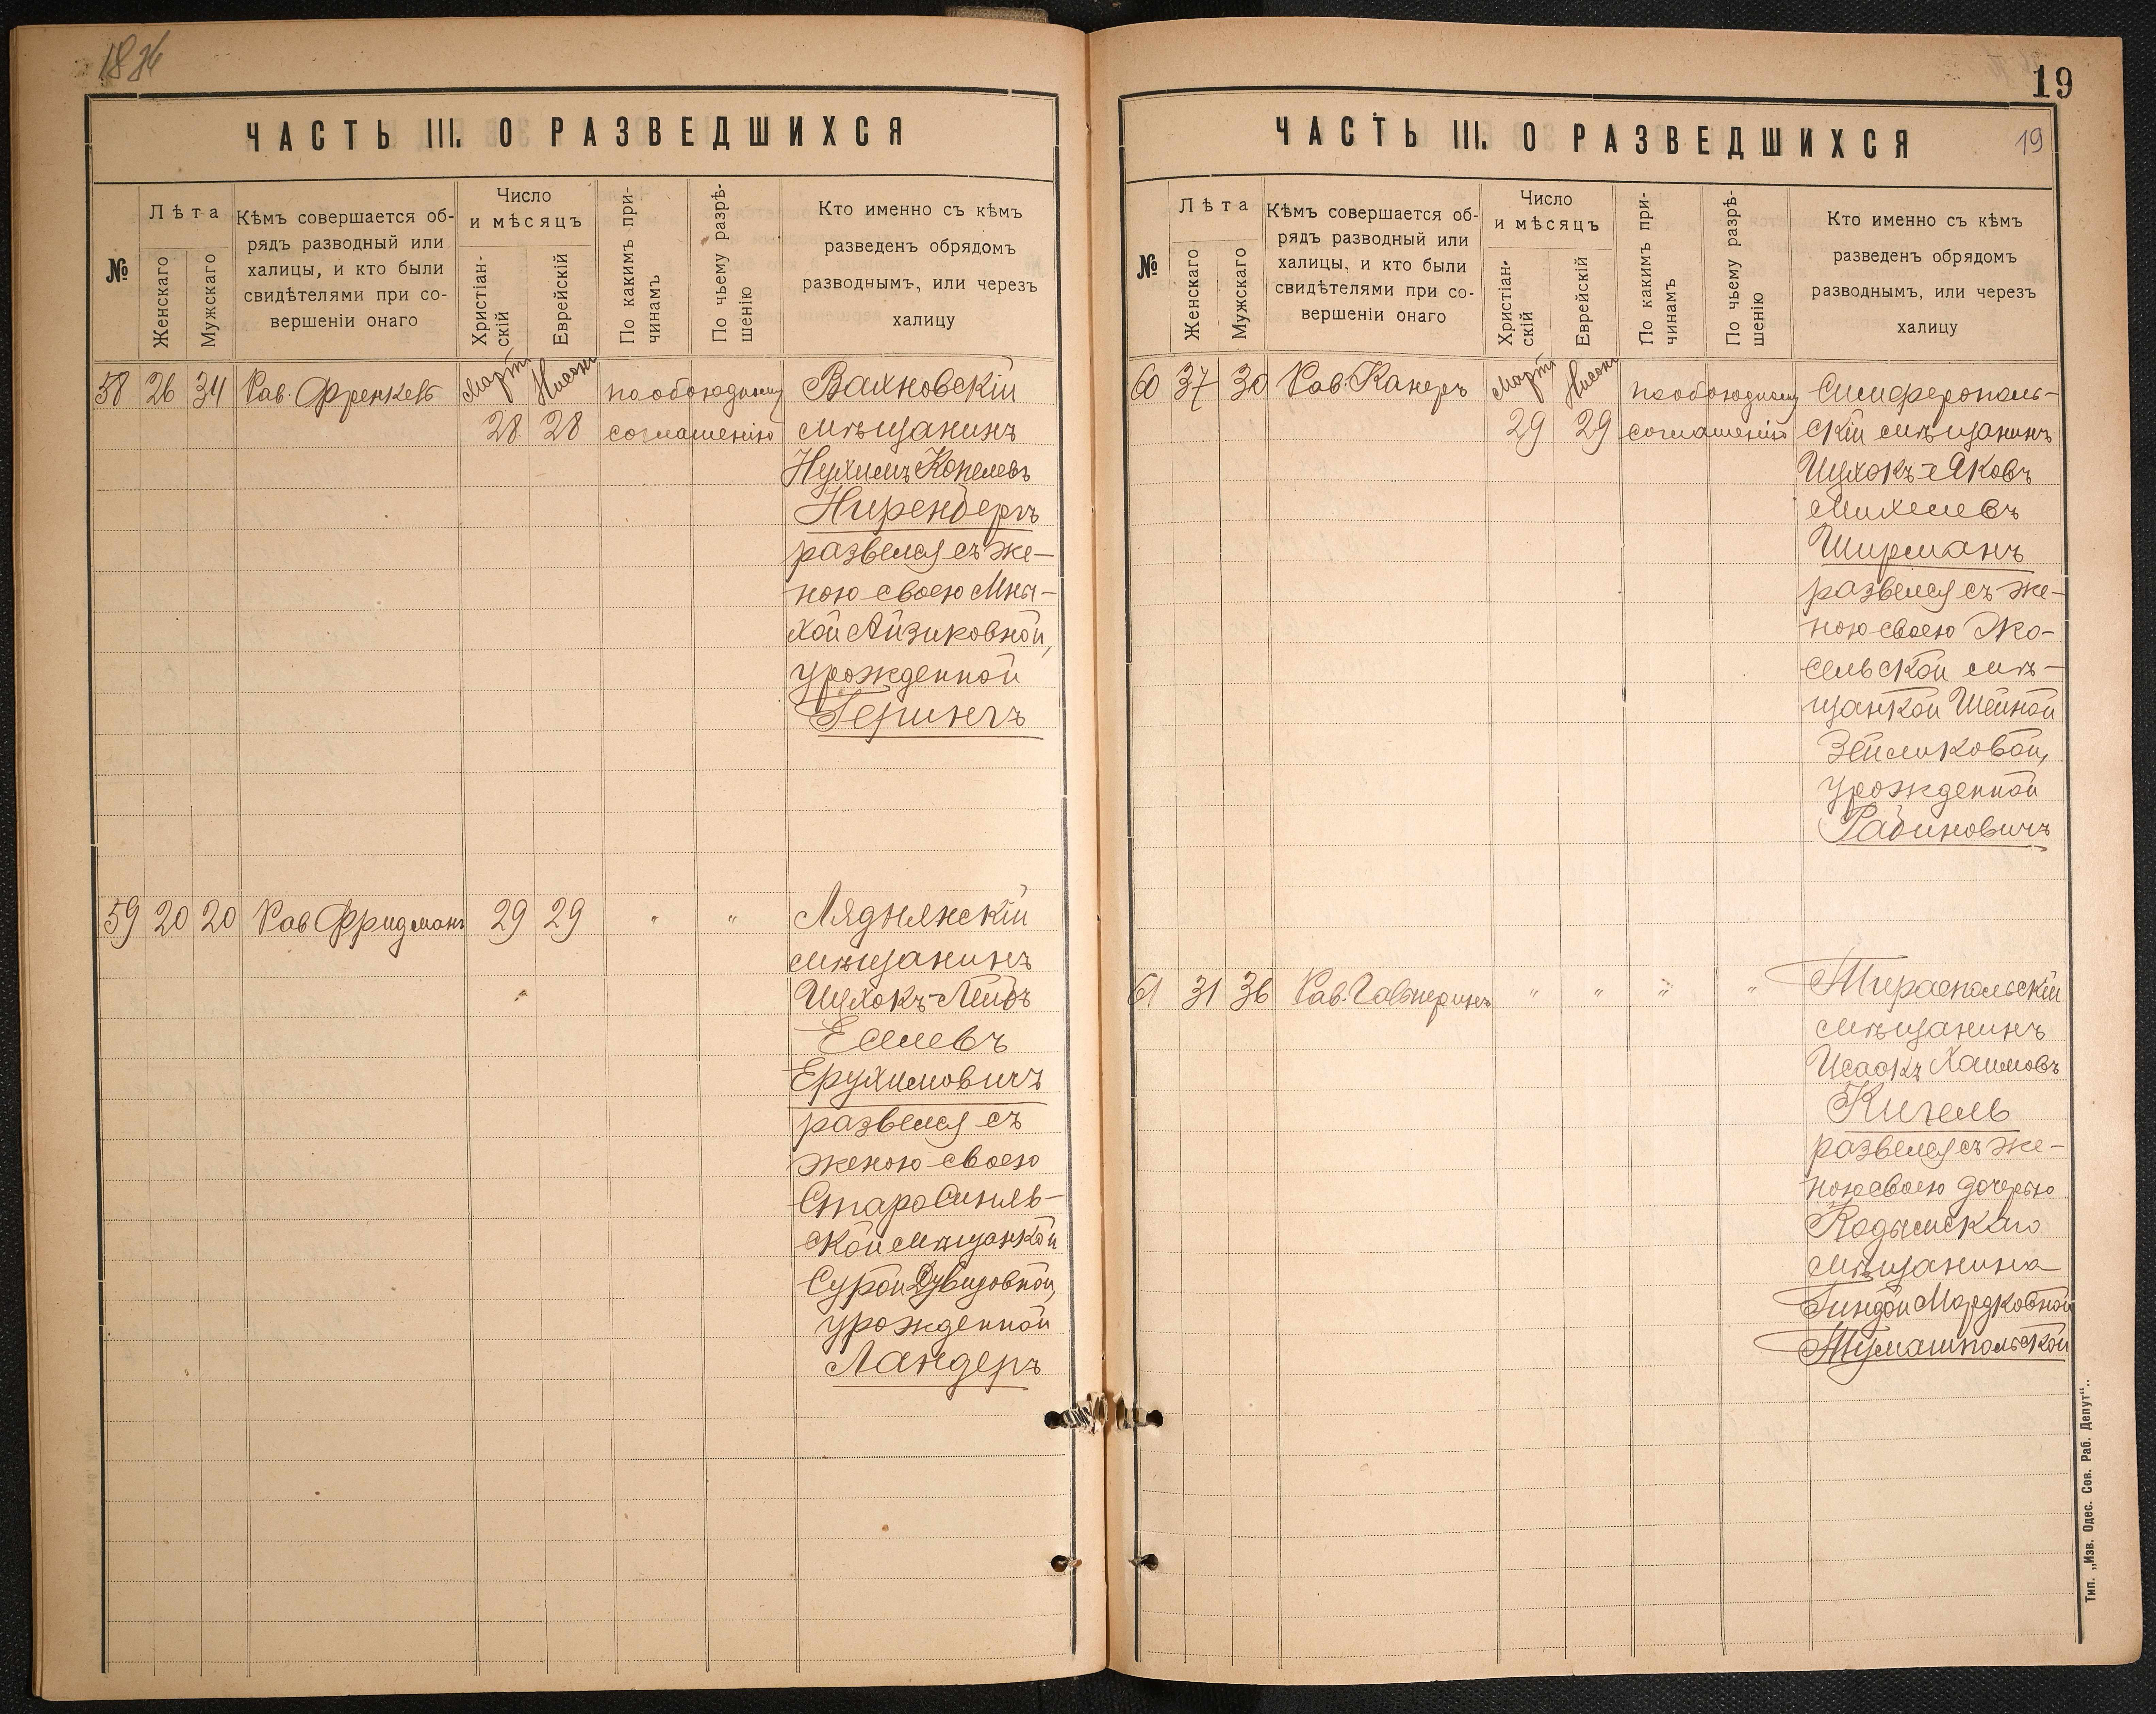 ЧАСТЬ III. О РАЗВЕДШИХСЯ
№
Лѣта
Женскаго
Мужскаго
Кѣмъ совершается об-
рядъ разводный или
халицы, и кто были
свидѣтелями при со-
вершеніи онаго
Число
и мѣсяцъ
Христіан-
скій
Еврейскій
По какимъ при-
чинамъ
По чьему разрѣ-
шенію
Кто именно съ кѣмъ
разведенъ обрядомъ
разводнымъ, или черезъ
халицу
58 26 34 Рав. Френкель Мартъ Нисонъ по обоюдному Вахновскій
28 28 соглашенію мѣщанинъ
Нухимъ Копелевъ
Ниренбергъ
развелся съ же-
ною своею Мни-
хой Айзиковной,
урожденной
Герингъ
59 20 20 Рав Фридманъ 29 29 " " Ляднянскій
мѣщанинъ
Ицхокъ-Лейбъ
Еселевъ
Ерухимовичъ
развелся съ
женою своею
СтароСиняв-
ской мѣщанкой
Сурой Дувидовной,
урожденной
Ландеръ
19
19
ЧАСТЬ III. О РАЗВЕДШИХСЯ
№
Лѣта
Женскаго
Мужскаго
Кѣмъ совершается об-
рядъ разводный или
халицы, и кто были
свидѣтелями при со-
вершеніи онаго
Число
и мѣсяцъ
Христіан-
скій
Еврейскій
По какимъ при-
чинамъ
По чьему разрѣ-
шенію
Кто именно съ кѣмъ
разведенъ обрядомъ
разводнымъ, или черезъ
халицу
60 37 30 Рав. Канеръ Мартъ Нисонъ по обоюдному Симферополь-
29 29 соглашенію скій мѣщанинъ
Ицхокъ-Яковъ
Михелевъ
Ширманъ
развелся съ же-
ною своею
сельской мѣ-
щанкой Шейной
Зейликовой,
урожденной
Рабиновичъ
61 31 36 Рав. Гальперинъ " " " " Тираспольскій
мѣщанинъ
Исаакъ Хаимовъ
Кигель
развелся съ же-
ною своею дочерью
Кодымскаго
мѣщанина
Гиндой Мордковной
Тумашпольской
Тип. „Изв. Одес. Сов. Раб. Депут“..